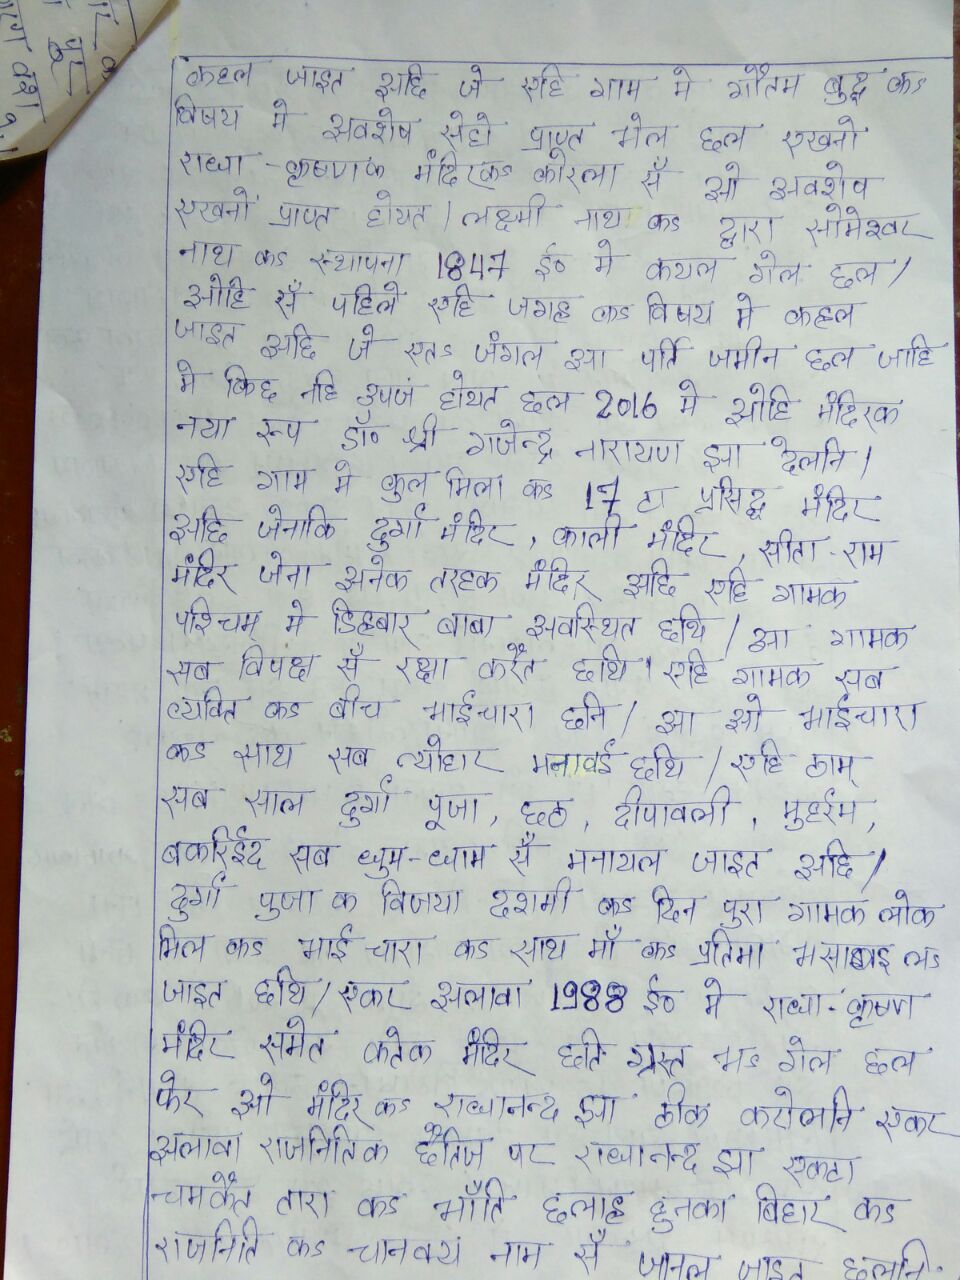 कहल जाइत अछि जे एहि गाम मे गौतम बुद्ध कऽ
विषय मे अवशेष सेहो प्राप्त भेल छल एखनो
राधा-कृष्णक मंदिरकऽ कोरला सँ ओ अवशेष
एखनो प्राप्त होयत। लक्ष्मी नाथ कऽ द्वारा सोमेश्वर
नाथ कऽ स्थापना 1847 ई० मे कयल गेल छल।
ओहि सँ पहिले एहि जगह कऽ विषय मे कहल
जाइत अछि जे एतऽ जंगल आ पर्ति जमीन छल जाहि
मे किछ नहि उपज होयत छल 2016 मे ओहि मंदिरक
नया रूप डॉ० श्री गजेन्द्र नारायण झा देलनि।
एहि गाम मे कुल मिला कऽ 17 टा प्रसिद्ध मंदिर
अछि जेनाकि दुर्गा मंदिर, काली मंदिर, सीता-राम
मंदिर जेना अनेक तरहक मंदिर अछि एहि गामक
पश्चिम मे डिहबार बाबा अवस्थित छथि। आ गामक
सब विपक्ष सँ रक्षा करैत छथि। एहि गामक सब
व्यक्ति कऽ बीच भाईचारा छनि। आ ओ भाईचारा
कऽ साथ सब त्योहार मनावई छथि। एहि ठाम्
सब साल दुर्गा पूजा, छठ, दीपावली, मुहर्रम,
बकरिईद सब धुम-धाम सँ मनायल जाइत अछि।
दुर्गा पुजा क विजया दशमी कऽ दिन पुरा गामक लोक
मिल कऽ भाई चारा कऽ साथ माँ कऽ प्रतिमा लऽ
जाइत छथि। एकर अलावा 1988 ई० मे राधा-कृष्ण
मंदिर समेत कतेक मंदिर छति ग्रस्त भऽ गेल छल
फेर ओ मंदिर कऽ राधानन्द झा ठीक करोलनि एकर
अलावा राजनितिक छैतिज पर राधानन्द झा एकटा
चमकैत तारा कऽ भाँति छलाह हुनका बिहार कऽ
राजनिति कऽ चानक्य नाम सँ जानल जाइत छलनि